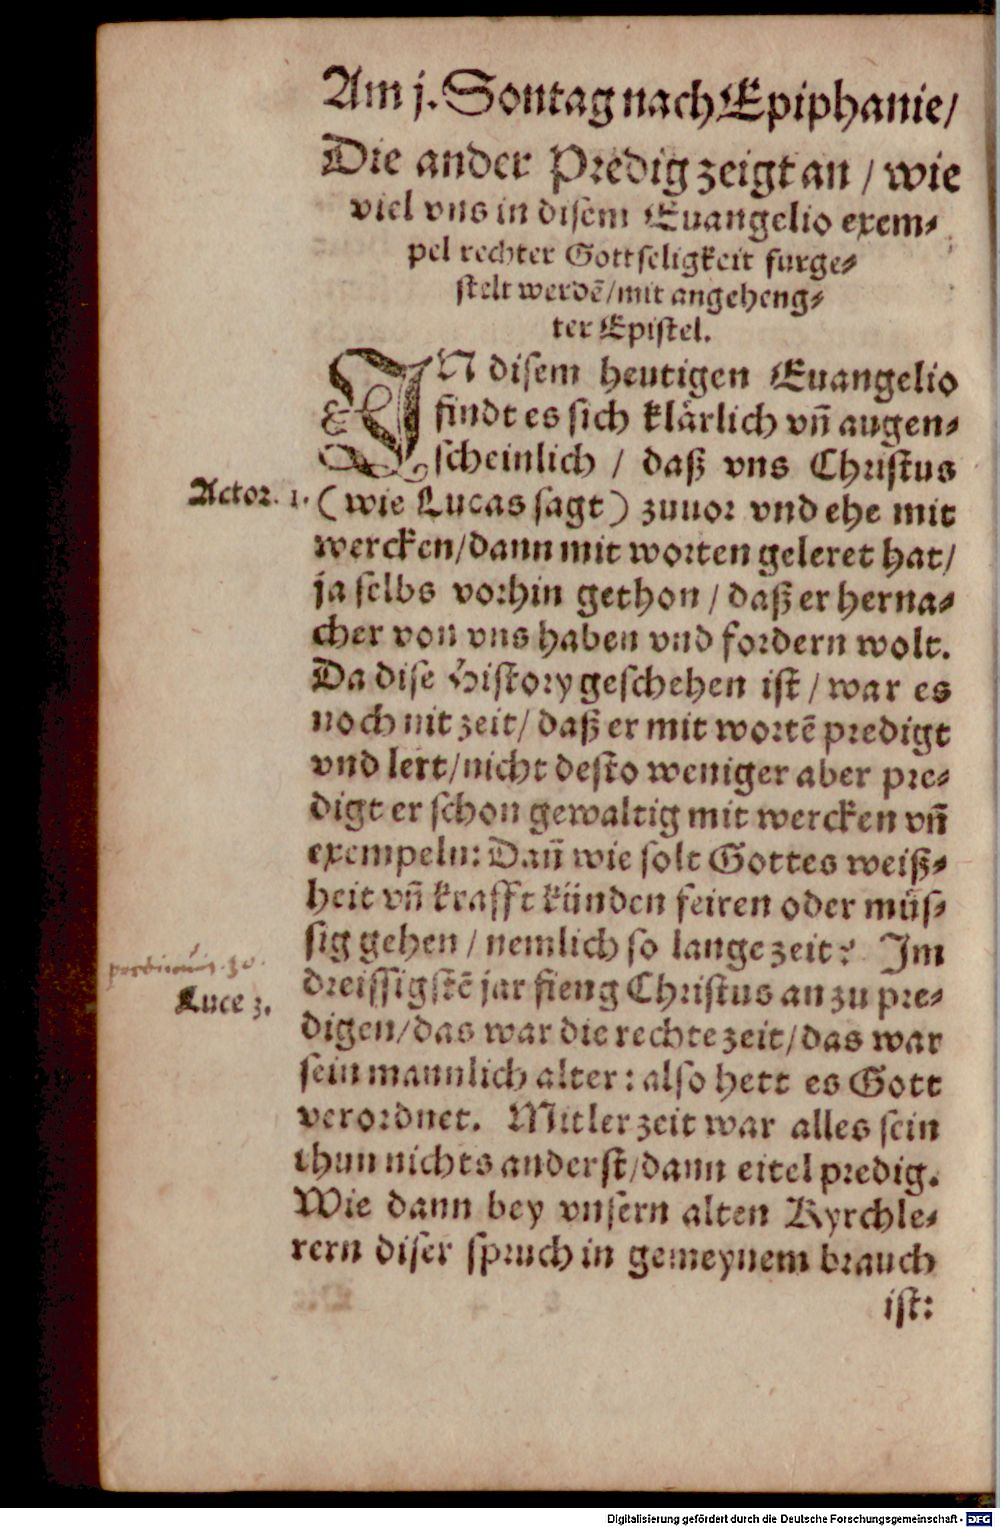 Am j. Sontag nach Epiphanie/
Die ander Predig zeigt an / wie
viel vns in disem Euangelio exem-
pel rechter Gottseligkeit furge-
stelt werdē/mit angeheng-
ter Epistel.
IN disem heutigen Euangelio
findt es sich klärlich vñ augen-
scheinlich / daß vns Christus
Actor. 1. (wie Lucas sagt) zuuor vnd ehe mit
wercken/dann mit worten geleret hat/
ja selbs vorhin gethon / daß er herna-
cher von vns haben vnd fordern wolt.
Da dise History geschehen ist / war es
noch nit zeit/ daß er mit wortē predigt
vnd lert/nicht desto weniger aber pre-
digt er schon gewaltig mit wercken vñ
exempeln: Dañ wie solt Gottes weiß-
heit vñ krafft künden feiren oder müs-
sig gehen / nemlich so lange zeit? Im
dreissigstē jar fieng Christus an zu pre-
Luce 3.
digen/das war die rechte zeit/das war
sein mannlich alter: also hett es Gott
verordnet. Mitler zeit war alles sein
thun nichts anderst/dann eitel predig.
Wie dann bey vnsern alten Kyrchle-
rern diser spruch in gemeynem brauch
ist:
Digitalisierung gefördert durch die Deutsche Forschungsgemeinschaft - DFG